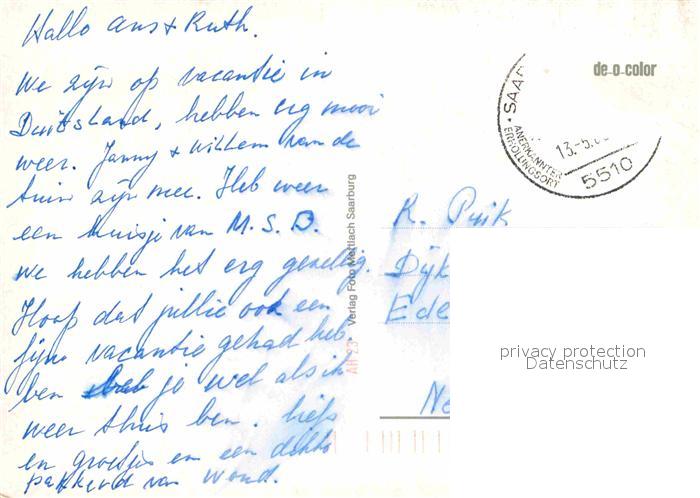 Hallo Ans + Ruth.
We zijn op vacantie in
Duitsland, hebben erg mooi
weer. Janny + Willem van de
tuin zijn mee. Heb weer
een huisje van M. S. D.
we hebben het erg gezellig.
Hoop dat jullie ook een
fijne vacantie gehad heb
ben je wel als ik
weer thuis ben. liefs
en groetjes en een dikke
pakkerd van Woud.
Verlag Foto Mettlach Saarburg
AH 23
de-o-color
SAAR
ANERKANNTER
ERHOLUNGSORT
13.-5.8
5510
R. Puik
Dijk
Ede
Ne
privacy protection
Datenschutz